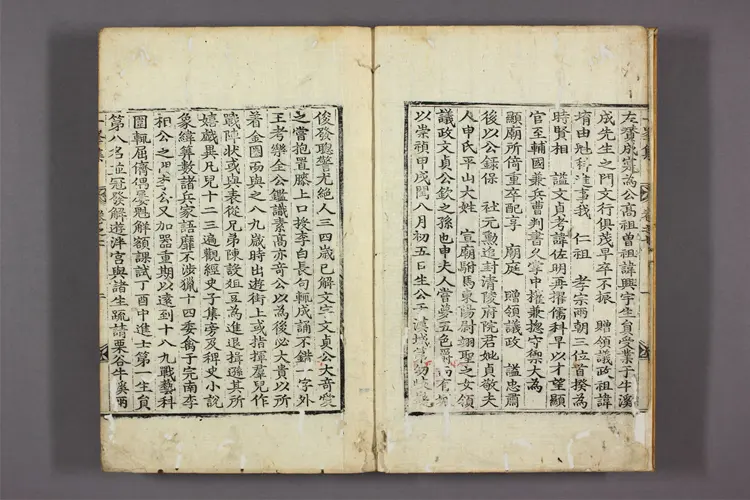 左賛成寔為公高祖曾祖諱興宇生員受業于牛溪
成先生之門文行俱茂早卒不振 贈領議政祖諱
堉由魁科進事我 仁祖 孝宗兩朝三位首揆為
時賢相 謚文貞考諱佐明再擢儒科早以才望顯
官至輔國兼兵曹判書久掌中權兼摠守禦大為
顯廟所倚重卒配享 廟庭 贈領議政 謚忠肅
後以公錄保 社元勳追封淸陵府院君妣貞敬夫
人申氏平山大姓 宣廟駙馬東陽尉翊聖之女領
議政文貞公欽之孫也申夫人嘗夢五色爵
以崇禎甲戌閏八月初五日生公于漢城
俊發聰警尤絕人三四歲已解文字文貞公大奇愛
之嘗抱置膝上口授李白長句輒成誦不錯一字外
王考樂全公鑑識素高亦奇公以為後必大貴以所
着金圈而與之八九歲時出遊街上或指揮羣兒作
戰陣狀或與表從兄弟陳設俎豆為進退揖遜其所
嬉戲異凡兒十二三遍觀經史子集旁及稗史小說
象緯算數諸兵家語靡不涉獵十四委禽于完南李
相公之門李公又加器重期以遠到十八九戰藝科
圍輒屈儕偶屢魁解額課試丁酉中進士第一生員
第八名並冠發解遊泮宮與諸生疏請栗谷牛溪兩